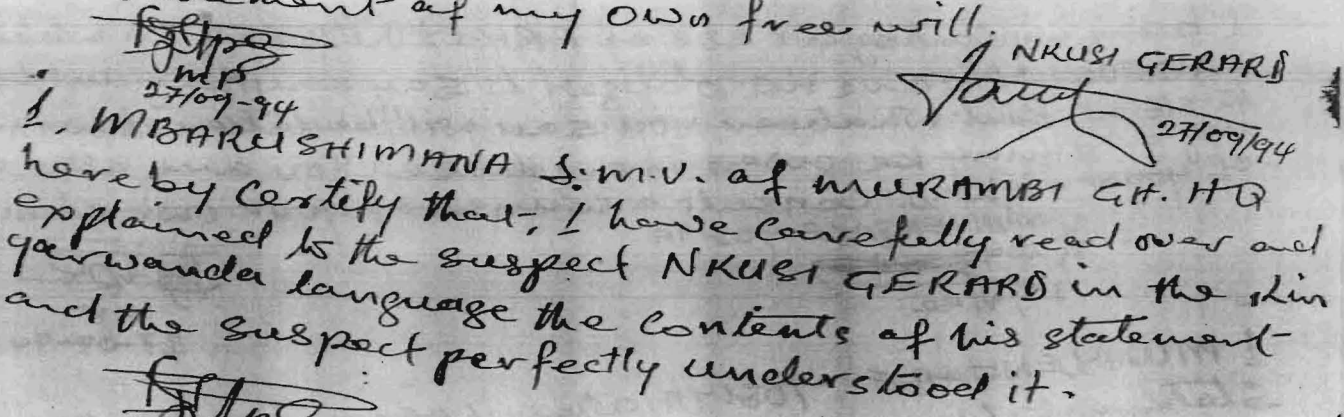 ment of my own free will.
I NKUSI GERARD
MP
27/09-94
27/09/94
I. MBARUSHIMANA J.M.V. of MURAMBI GH. HQ
hereby certify that, I have carefully read over and
explained to the suspect NKUSI GERARD in the Kin
yarwanda language the contents of his statement
and the suspect perfectly understood it.